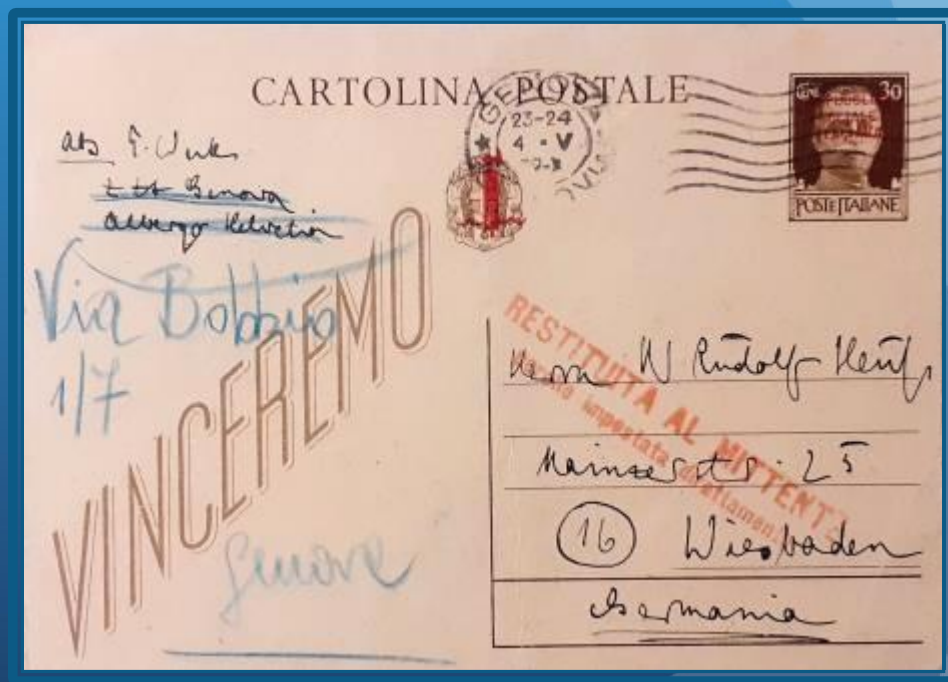 CARTOLINA POSTALE
23-24
4 · V
30
POSTE ITALIANE
Genova
Albergo Helvetia
Via Bobbio
1/7
VINCEREMO
Genova
RESTITUITA AL MITTENTE
impostata direttamente
Herrn W Rudolf
Mainzerstr. 25
16 Wiesbaden
Germania